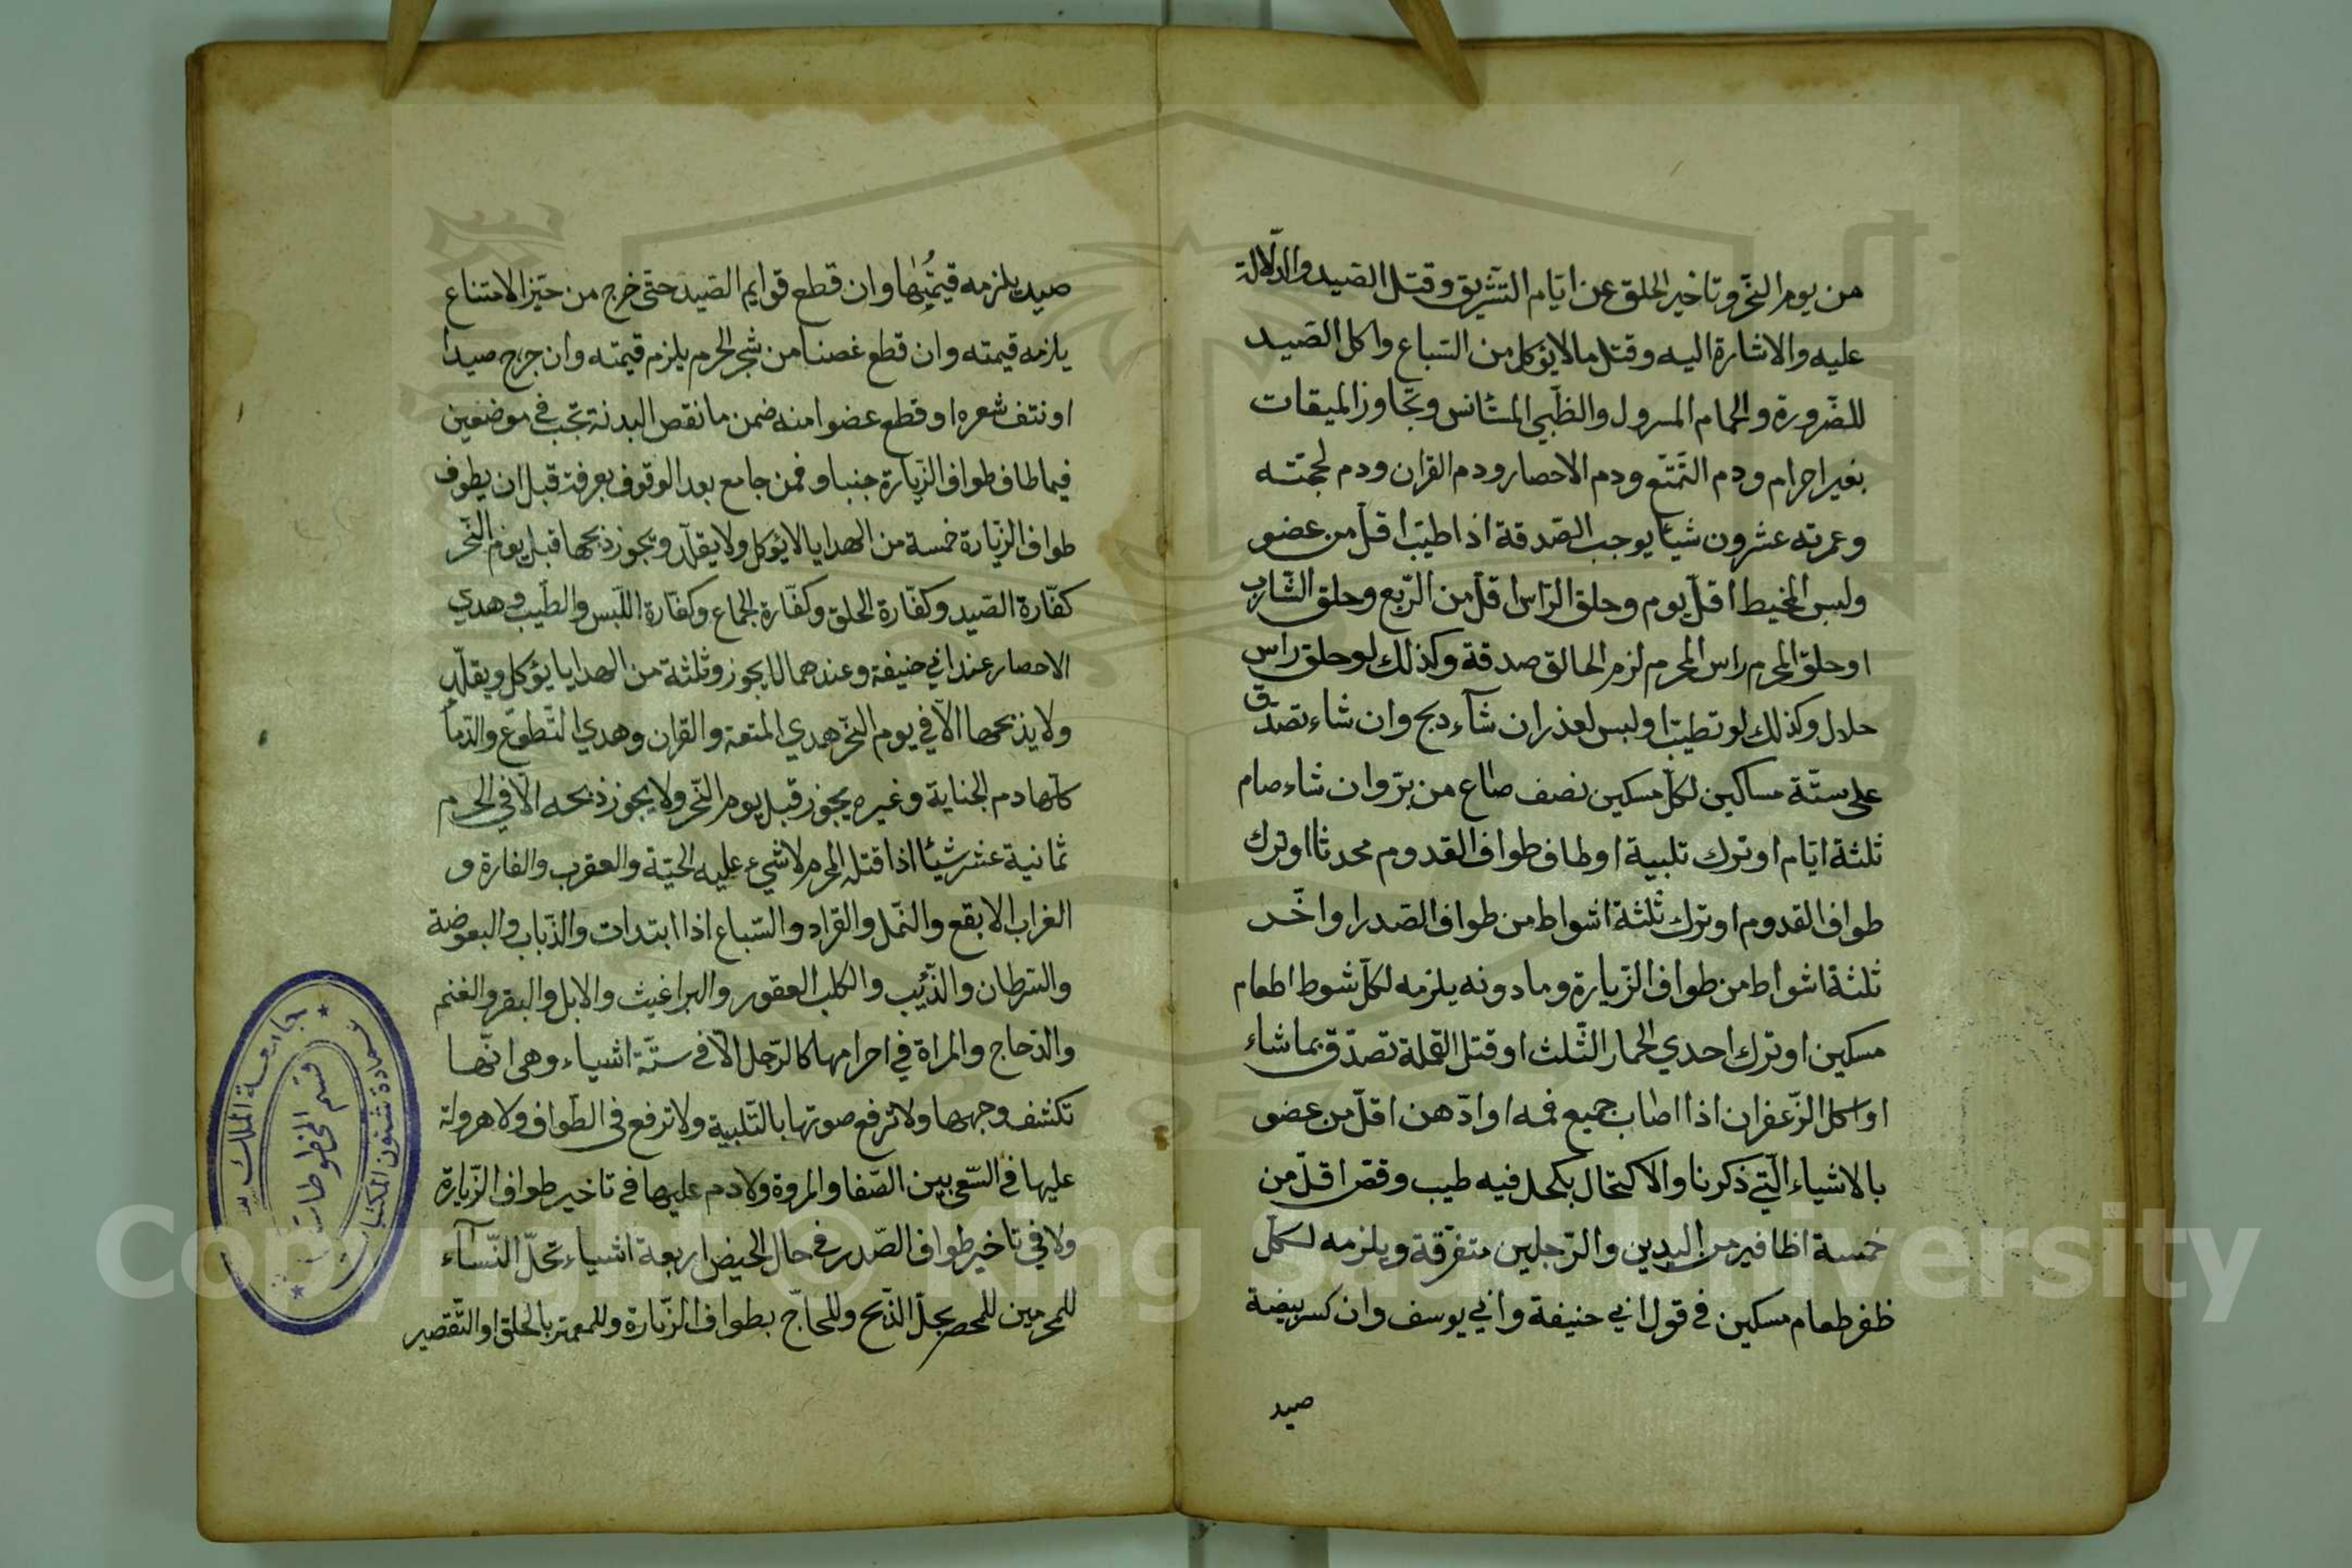 من يوم النّحر وتاخير الحلق عن ايّام التّشريق وقتل الصّيد والدّلالة
عليه والاشارة اليه وقتل ما لا يؤكل من السّباع واكل الصّيد
للضّرورة والحمام المسرول والظّبي المستأنس وتجاوز الميقات
بغير احرام ودم التّمتّع ودم الاحصار ودم القران ودم لحجّته
وعمرته عشرون شيأ يوجب الصّدقة اذا طيّب اقلّ من عضو
ولبس المخيط اقلّ يوم وحلق الرّاس اقلّ من الرّبع وحلق الشّارب
او حلق المحرم راس المحرم لزم الحالق صدقة وكذلك لو حلق راس
حلال وكذلك لو تطيّب او لبس لعذر ان شآء ذبح وان شاء تصدّق
على ستّة مساكين لكلّ مسكين نصف صاع من برّ وان شاء صام
ثلثة ايّام او ترك تلبية او طاف طواف القدوم محدثا او ترك
طواف القدوم او ترك ثلثة اشواط من طواف الصّدر او اخّر
ثلثة اشواط من طواف الزّيارة وما دونه يلزمه لكلّ شوط اطعام
مسكين او ترك احدي الجمار الثّلث او قتل القملة تصدّق بما شاء
او اكل الزّعفران اذا اصاب جميع فمه او ادّهن اقلّ من عضو
بالاشياء الّتي ذكرنا والاكتحال بكحل فيه طيب وقصّ اقلّ من
خمسة اظافير من اليدين والرّجلين متفرّقة ويلزمه لكلّ
ظفر طعام مسكين في قول ابي حنيفة وابي يوسف وان كسر بيضة
صيد
صيد يلزمه قيمتها وان قطع قوايم الصّيد حتى خرج من حيّز الامتناع
يلزمه قيمته وان قطع غصنا من شجر الحرم يلزم قيمته وان جرح صيدا
او نتف شعره او قطع عضوا منه ضمن ما نقص البدنة تجب في موضعين
فيما طاف طواف الزّيارة جنبا وفمن جامع بعد الوقوف بعرفة قبل ان يطوف
طواف الزّيارة خمسة من الهدايا لا يؤكل ولا يقلّد ويجوز ذبحها قبل يوم النّحر
كفّارة الصّيد وكفّارة الحلق وكفّارة الجماع وكفّارة اللّبس والطّيب وهدي
الاحصار عند ابي حنيفة وعندهما لا يجوز وثلثة من الهدايا يؤكل ويقلّد
ولا يذبحها الّا في يوم النّحر هدي المتعة والقران وهدي التّطوّع والدّما
كلّها دم الجناية وغيره يجوز قبل يوم النّحر ولا يجوز ذبحه الّا في الحرم
ثمانية عشر شيئا اذا قتله المحرم لا شيء عليه الحيّة والعقرب والفارة و
الغراب الابقع والنّمل والقراد والسّباع اذا ابتدات والذّباب والبعوضة
والسّرطان والذّئب والكلب العقور والبراغيث والابل والبقر والغنم
والدّجاج والمراة في احرامها كالرّجل الّا في ستّة اشياء وهي انّها
تكشف وجهها ولا ترفع صوتها بالتّلبية ولا ترفع في الطّواف ولا هرولة
عليها في السّعي بين الصّفا والمروة ولا دم عليها في تاخير طواف الزّيارة
ولا في تاخير طواف الصّدر في حال الحيض اربعة اشياء تحلّ النّسآء
للمحرمين للمحصر بحلّ الذّبح وللحاجّ بطواف الزّيارة وللمعتمر بالحلق او التّقصير
جامعة الملك
قسم المخطوطات
عمادة شئون المكتبات
Copyright © King Saud University